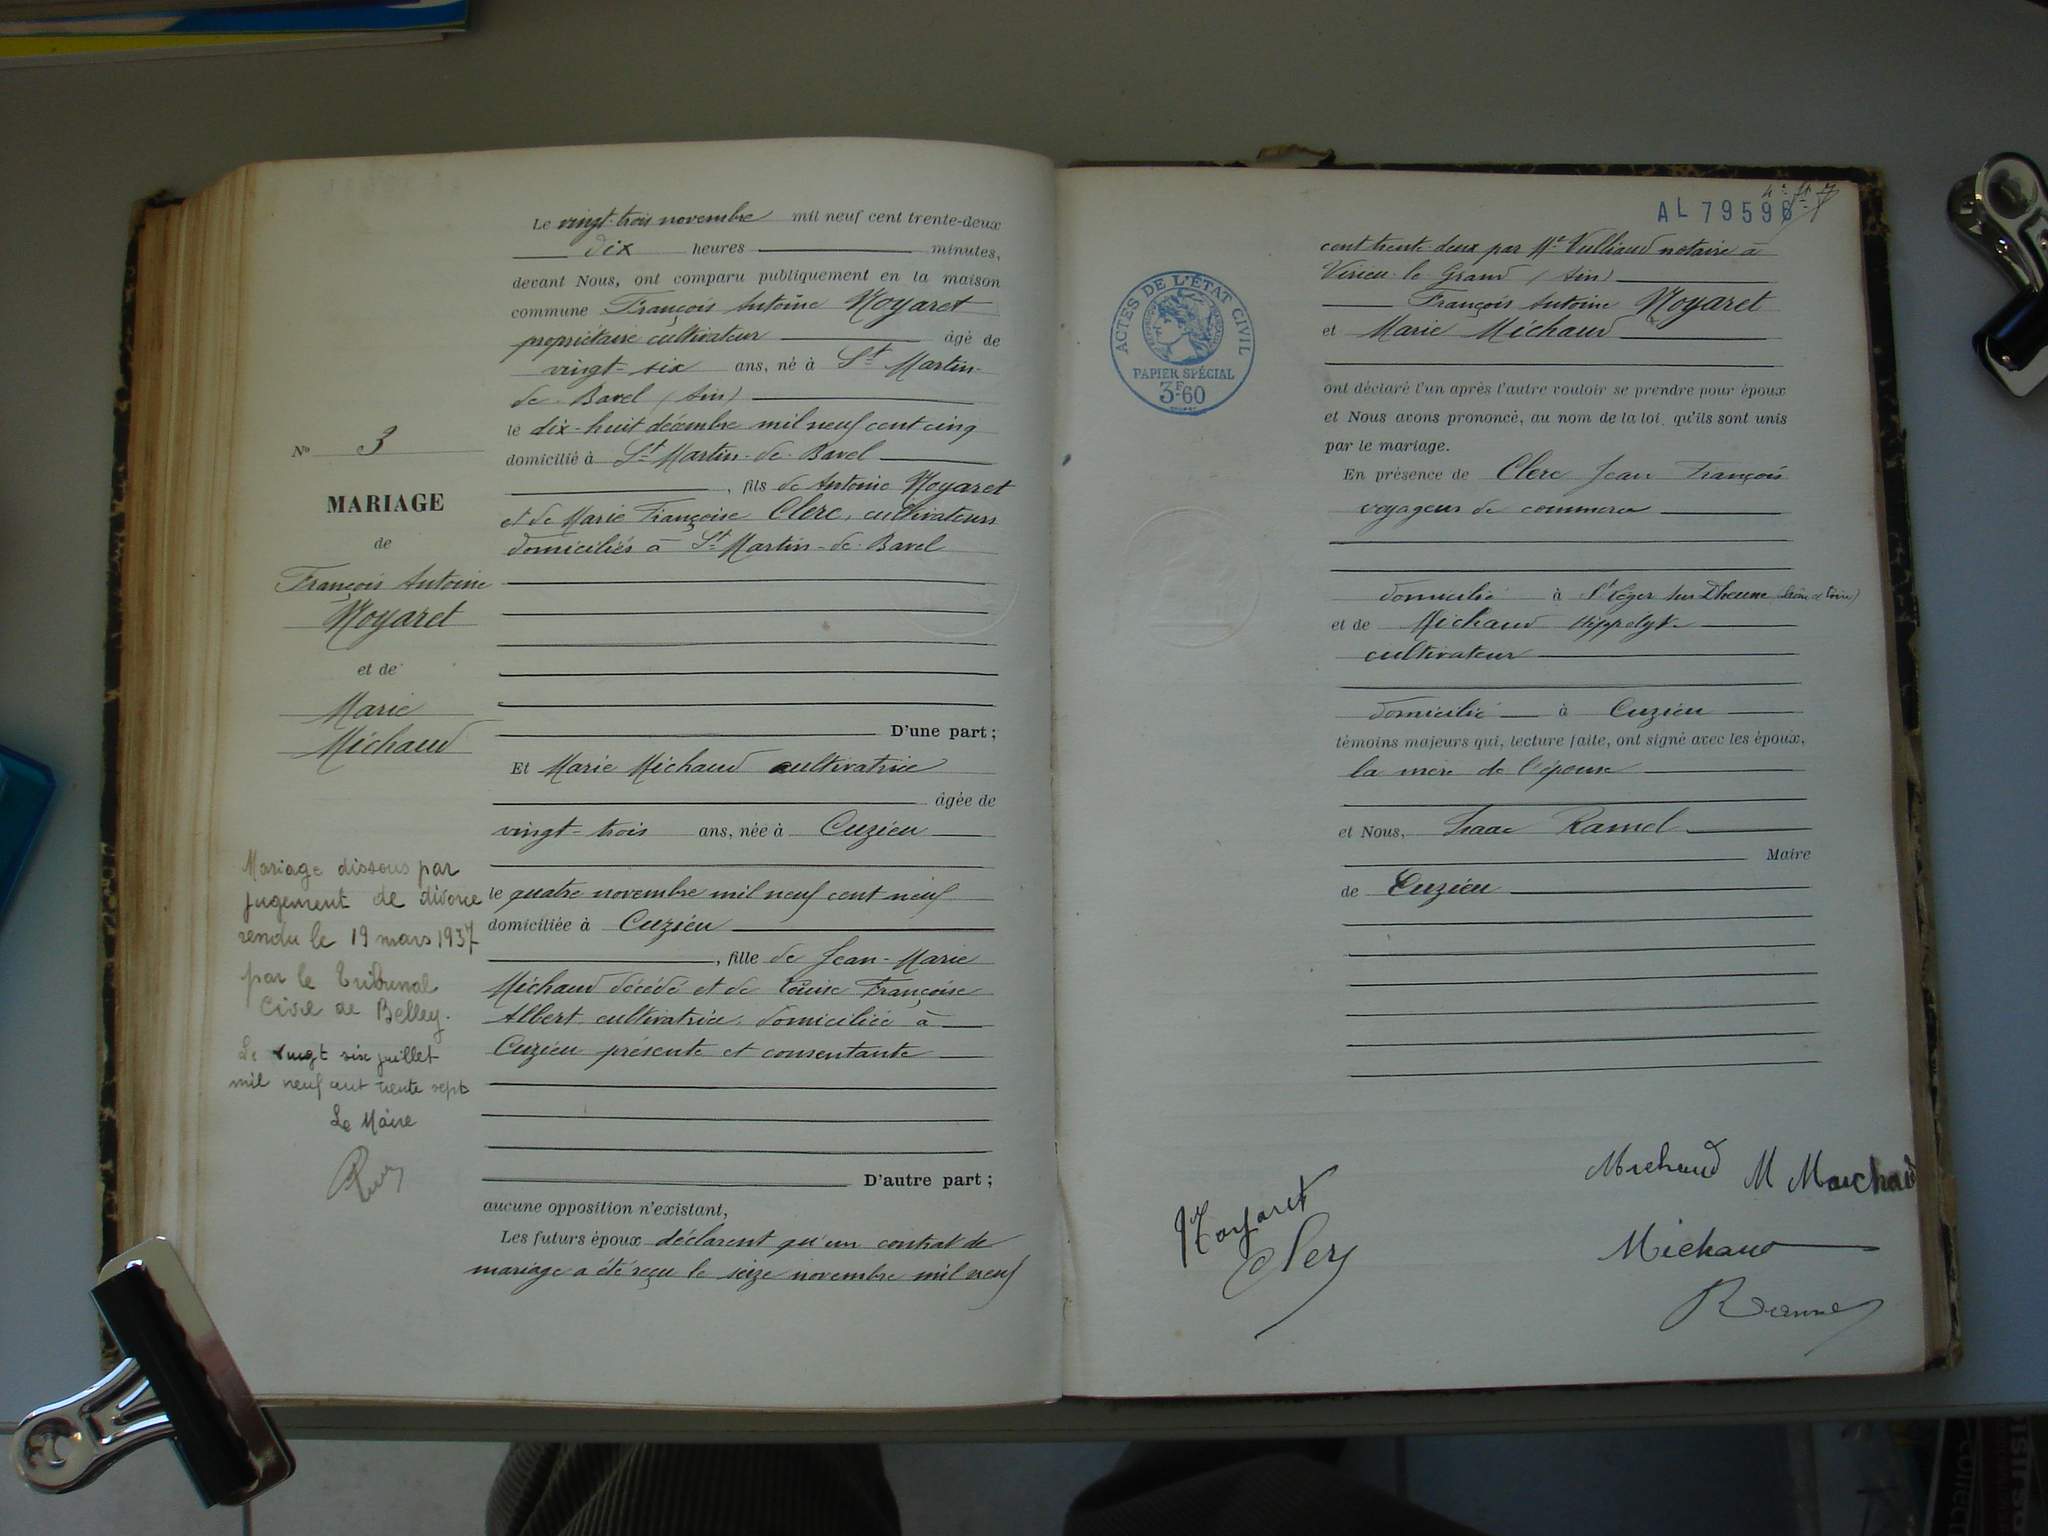 Le vingt-trois novembre mil neuf cent trente-deux
dix heures minutes,
devant Nous, ont comparu publiquement en la maison
commune François Antoine Noyaret
propriétaire cultivateur âgé de
vingt-six ans, né à St Martin-
de-Bavel (Ain)
le dix-huit décembre mil neuf cent cinq
domicilié à St Martin-de-Bavel
, fils de Antoine Noyaret
et de Marie Françoise Clerc, cultivateurs
domiciliés à St Martin-de-Bavel
D'une part ;
Et Marie Michaud cultivatrice
âgée de
vingt-trois ans, née à Cuzieu
le quatre novembre mil neuf cent neuf
domiciliée à Cuzieu
, fille de Jean-Marie
Michaud décédé et de Louise Françoise
Albert cultivatrice, domiciliée à
Cuzieu présente et consentante
D'autre part ;
aucune opposition n'existant,
Les futurs époux déclarent qu'un contrat de
mariage a été reçu le seize novembre mil neuf
No 3
MARIAGE
de
François Antoine
Noyaret
et de
Marie
Michaud
Mariage dissous par
jugement de divorce
rendu le 19 mars 1937
par le Tribunal
Civil de Belley.
Le vingt six juillet
mil neuf cent trente sept
Le Maire
AL 79596
cent trente-deux par Me Vulliaud notaire à
Virieu-le-Grand (Ain)
François Antoine Noyaret
et Marie Michaud
ont déclaré l'un après l'autre vouloir se prendre pour époux
et Nous avons prononcé, au nom de la loi, qu'ils sont unis
par le mariage.
En présence de Clerc Jean François
voyageur de commerce
domicilié à St Léger sur Dheune (Saône et Loire)
et de Michaud Hippolyte
cultivateur
domicilié à Cuzieu
témoins majeurs qui, lecture faite, ont signé avec les époux,
la mère de l'épouse
et Nous, Isaac Ramel
Maire
de Cuzieu
ACTES DE L'ÉTAT CIVIL
PAPIER SPÉCIAL
3F60
Noyaret
Clerc
Michaud M Michaud
Michaud
Ramel